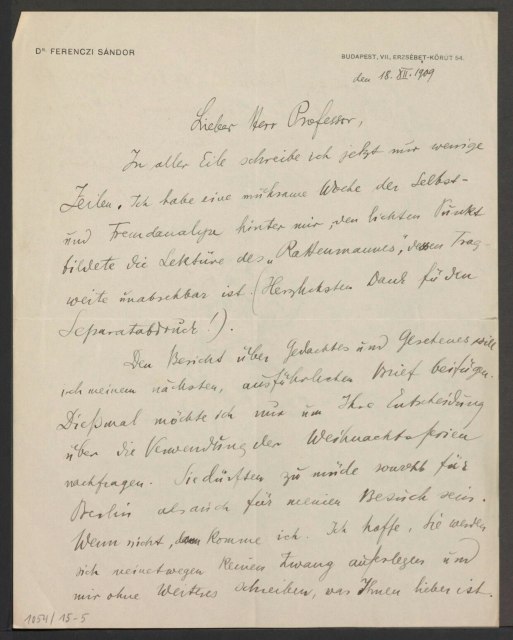 Dr. FERENCZI SÁNDOR
BUDAPEST, VII., ERZSÉBET-KÖRUT 54.
den 18. XII. 1909
Lieber Herr Professor,
In aller Eile schreibe ich jetzt nur wenige
Zeilen. Ich habe eine mühsame Woche der Selbst-
und Fremdanalyse hinter mir, den lichten Punkt
bildete die Lektüre des „Rattenmannes", dessen Trag-
weite unabsehbar ist. (Herzlichsten Dank für den
Separatabdruck!).
Den Bericht über Gedachtes und Gesehenes will
ich meinem nächsten, ausführlichen Brief beifügen.
Dießmal möchte ich nur um Ihre Entscheidung
über die Verwendung der Weihnachtsferien
nachfragen. Sie dürften zu müde sowohl für
Berlin als auch für meinen Besuch sein.
Wenn nicht, komme ich. Ich hoffe, Sie werden
sich meinetwegen keinen Zwang auferlegen und
mir ohne Weiteres schreiben, was Ihnen lieber ist.
1054/15-5